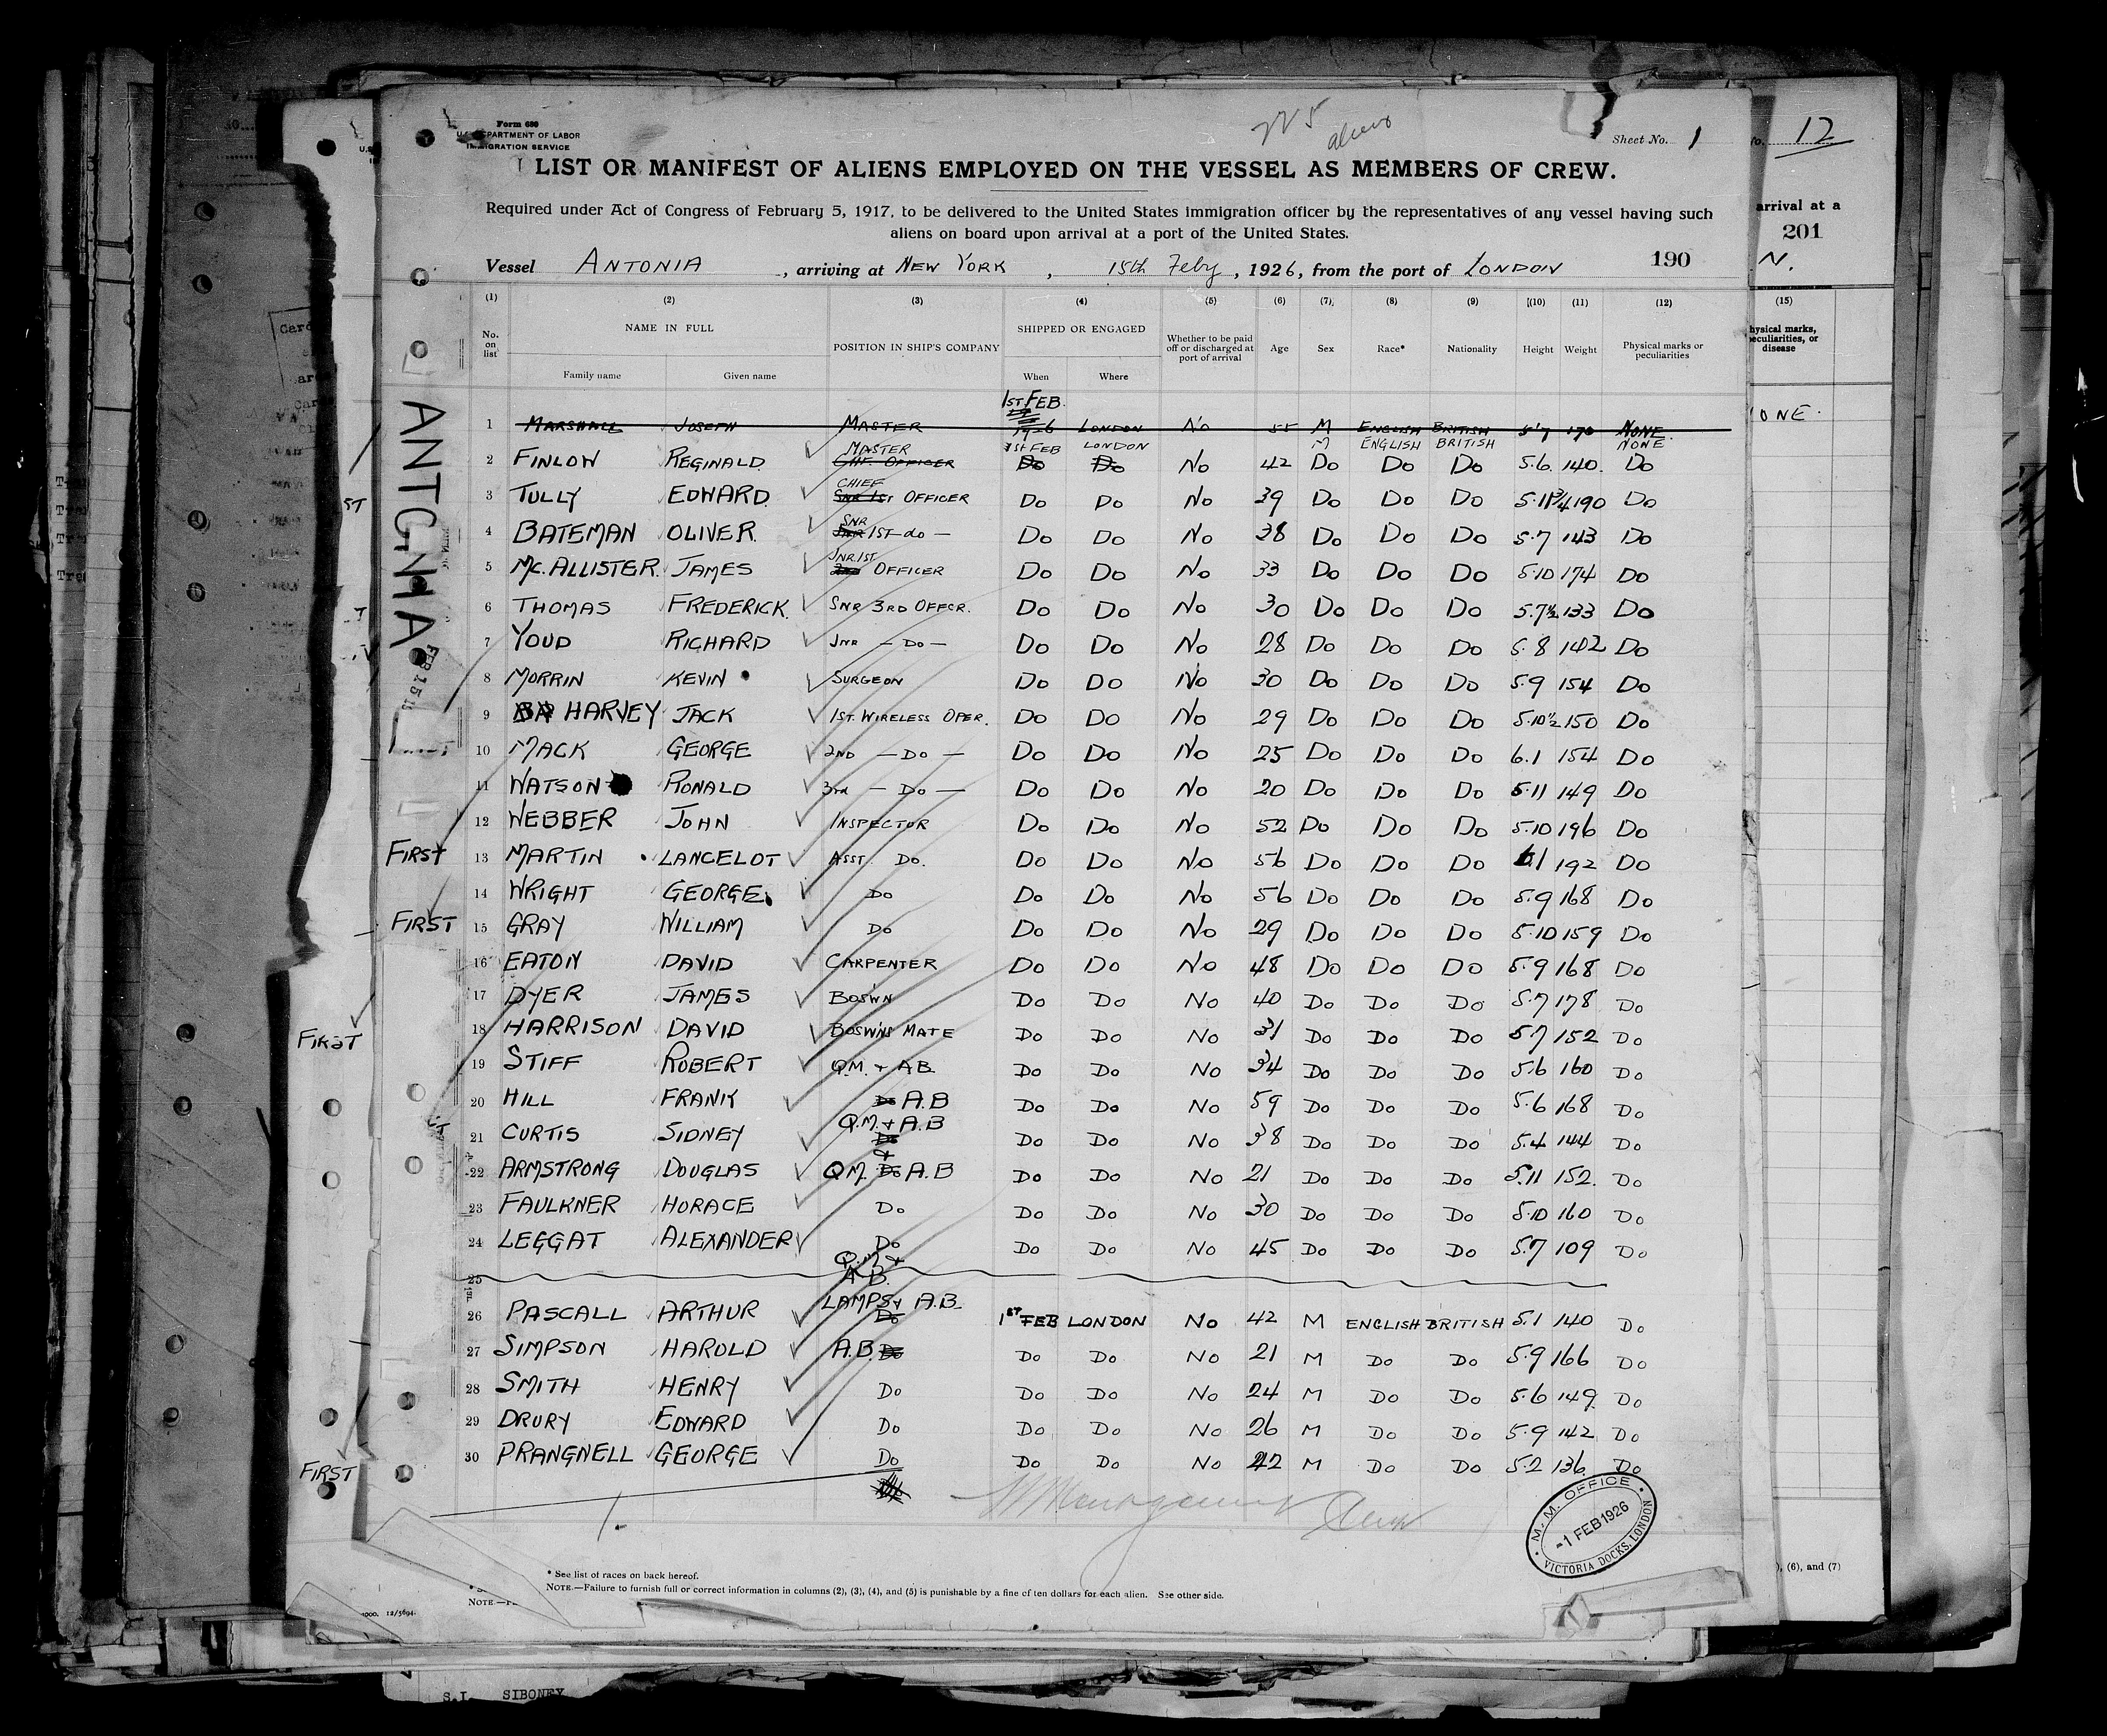 Form 680
U.S. DEPARTMENT OF LABOR
IMMIGRATION SERVICE
225
aliens
Sheet No. 1
12
LIST OR MANIFEST OF ALIENS EMPLOYED ON THE VESSEL AS MEMBERS OF CREW.
Required under Act of Congress of February 5, 1917, to be delivered to the United States immigration officer by the representatives of any vessel having such
aliens on board upon arrival at a port of the United States.
arrival at a
201
N.
Vessel ANTONIA, arriving at NEW YORK, 15th Feby, 1926, from the port of LONDON 190
(1) (2) (3) (4) (5) (6) (7) (8) (9) (10) (11) (12) (15)
No. on list NAME IN FULL Family name Given name POSITION IN SHIP'S COMPANY SHIPPED OR ENGAGED When Where Whether to be paid off or discharged at port of arrival Age Sex Race* Nationality Height Weight Physical marks or peculiarities
1ST FEB.
1 MARSHALL JOSEPH MASTER 1926 LONDON No 55 M ENGLISH BRITISH 5'7 170 NONE
MASTER 1st FEB LONDON M ENGLISH BRITISH NONE
2 FINLOW REGINALD CHF OFFICER Do Do No 42 Do Do Do 5.6. 140. Do
CHIEF
3 TULLY EDWARD SNR 1ST OFFICER Do Do No 39 Do Do Do 5.11 3/4 190 Do
SNR
4 BATEMAN OLIVER JNR 1ST - do - Do Do No 38 Do Do Do 5.7 143 Do
JNR 1ST
5 McALLISTER JAMES OFFICER Do Do No 33 Do Do Do 5.10 174 Do
6 THOMAS FREDERICK SNR 3RD OFFCR. Do Do No 30 Do Do Do 5.7½ 133 Do
7 YOUD RICHARD JNR - Do - Do Do No 28 Do Do Do 5.8 142 Do
8 MORRIN KEVIN SURGEON Do Do No 30 Do Do Do 5.9 154 Do
9 HARVEY JACK 1ST. WIRELESS OPER. Do Do No 29 Do Do Do 5.10½ 150 Do
10 MACK GEORGE 2ND - Do - Do Do No 25 Do Do Do 6.1 154 Do
11 WATSON RONALD 3rd - Do - Do Do No 20 Do Do Do 5.11 149 Do
12 WEBBER JOHN INSPECTOR Do Do No 52 Do Do Do 5.10 196 Do
FIRST 13 MARTIN LANCELOT ASST. Do. Do Do No 56 Do Do Do 6.1 192 Do
14 WRIGHT GEORGE Do Do Do No 56 Do Do Do 5.9 168 Do
FIRST 15 GRAY WILLIAM Do Do Do No 29 Do Do Do 5.10 159 Do
16 EATON DAVID CARPENTER Do Do No 48 Do Do Do 5.9 168 Do
17 DYER JAMES BOS'WN Do Do No 40 Do Do Do 5.7 178 Do
FIRST 18 HARRISON DAVID BOSWNS MATE Do Do No 31 Do Do Do 5.7 152 Do
19 STIFF ROBERT Q.M. + A.B. Do Do No 34 Do Do Do 5.6 160 Do
20 HILL FRANK Do A.B Do Do No 59 Do Do Do 5.6 168 Do
Q.M. + A.B
21 CURTIS SIDNEY Do Do Do No 38 Do Do Do 5.4 144 Do
22 ARMSTRONG DOUGLAS Q.M. + Do A.B Do Do No 21 Do Do Do 5.11 152. Do
23 FAULKNER HORACE Do Do Do No 30 Do Do Do 5.10 160 Do
24 LEGGAT ALEXANDER Do Do Do No 45 Do Do Do 5.7 109 Do
25 Q.M. + A.B.
LAMPS + A.B.
26 PASCALL ARTHUR Do 1ST FEB LONDON No 42 M ENGLISH BRITISH 5.1 140 Do
27 SIMPSON HAROLD A.B. Do Do Do No 21 M Do Do 5.9 166 Do
28 SMITH HENRY Do Do Do No 24 M Do Do 5.6 149 Do
29 DRURY EDWARD Do Do Do No 26 M Do Do 5.9 142 Do
30 PRANGNELL GEORGE Do Do Do No 42 M Do Do 5.2 136. Do
FIRST
M.M. OFFICE
-1 FEB 1926
VICTORIA DOCKS, LONDON
* See list of races on back hereof.
NOTE.—Failure to furnish full or correct information in columns (2), (3), (4), and (5) is punishable by a fine of ten dollars for each alien. See other side.
NOTE.
), (6), and (7)
12/5694.
ANTONIA
FEB 15
S.I. SIBONEY